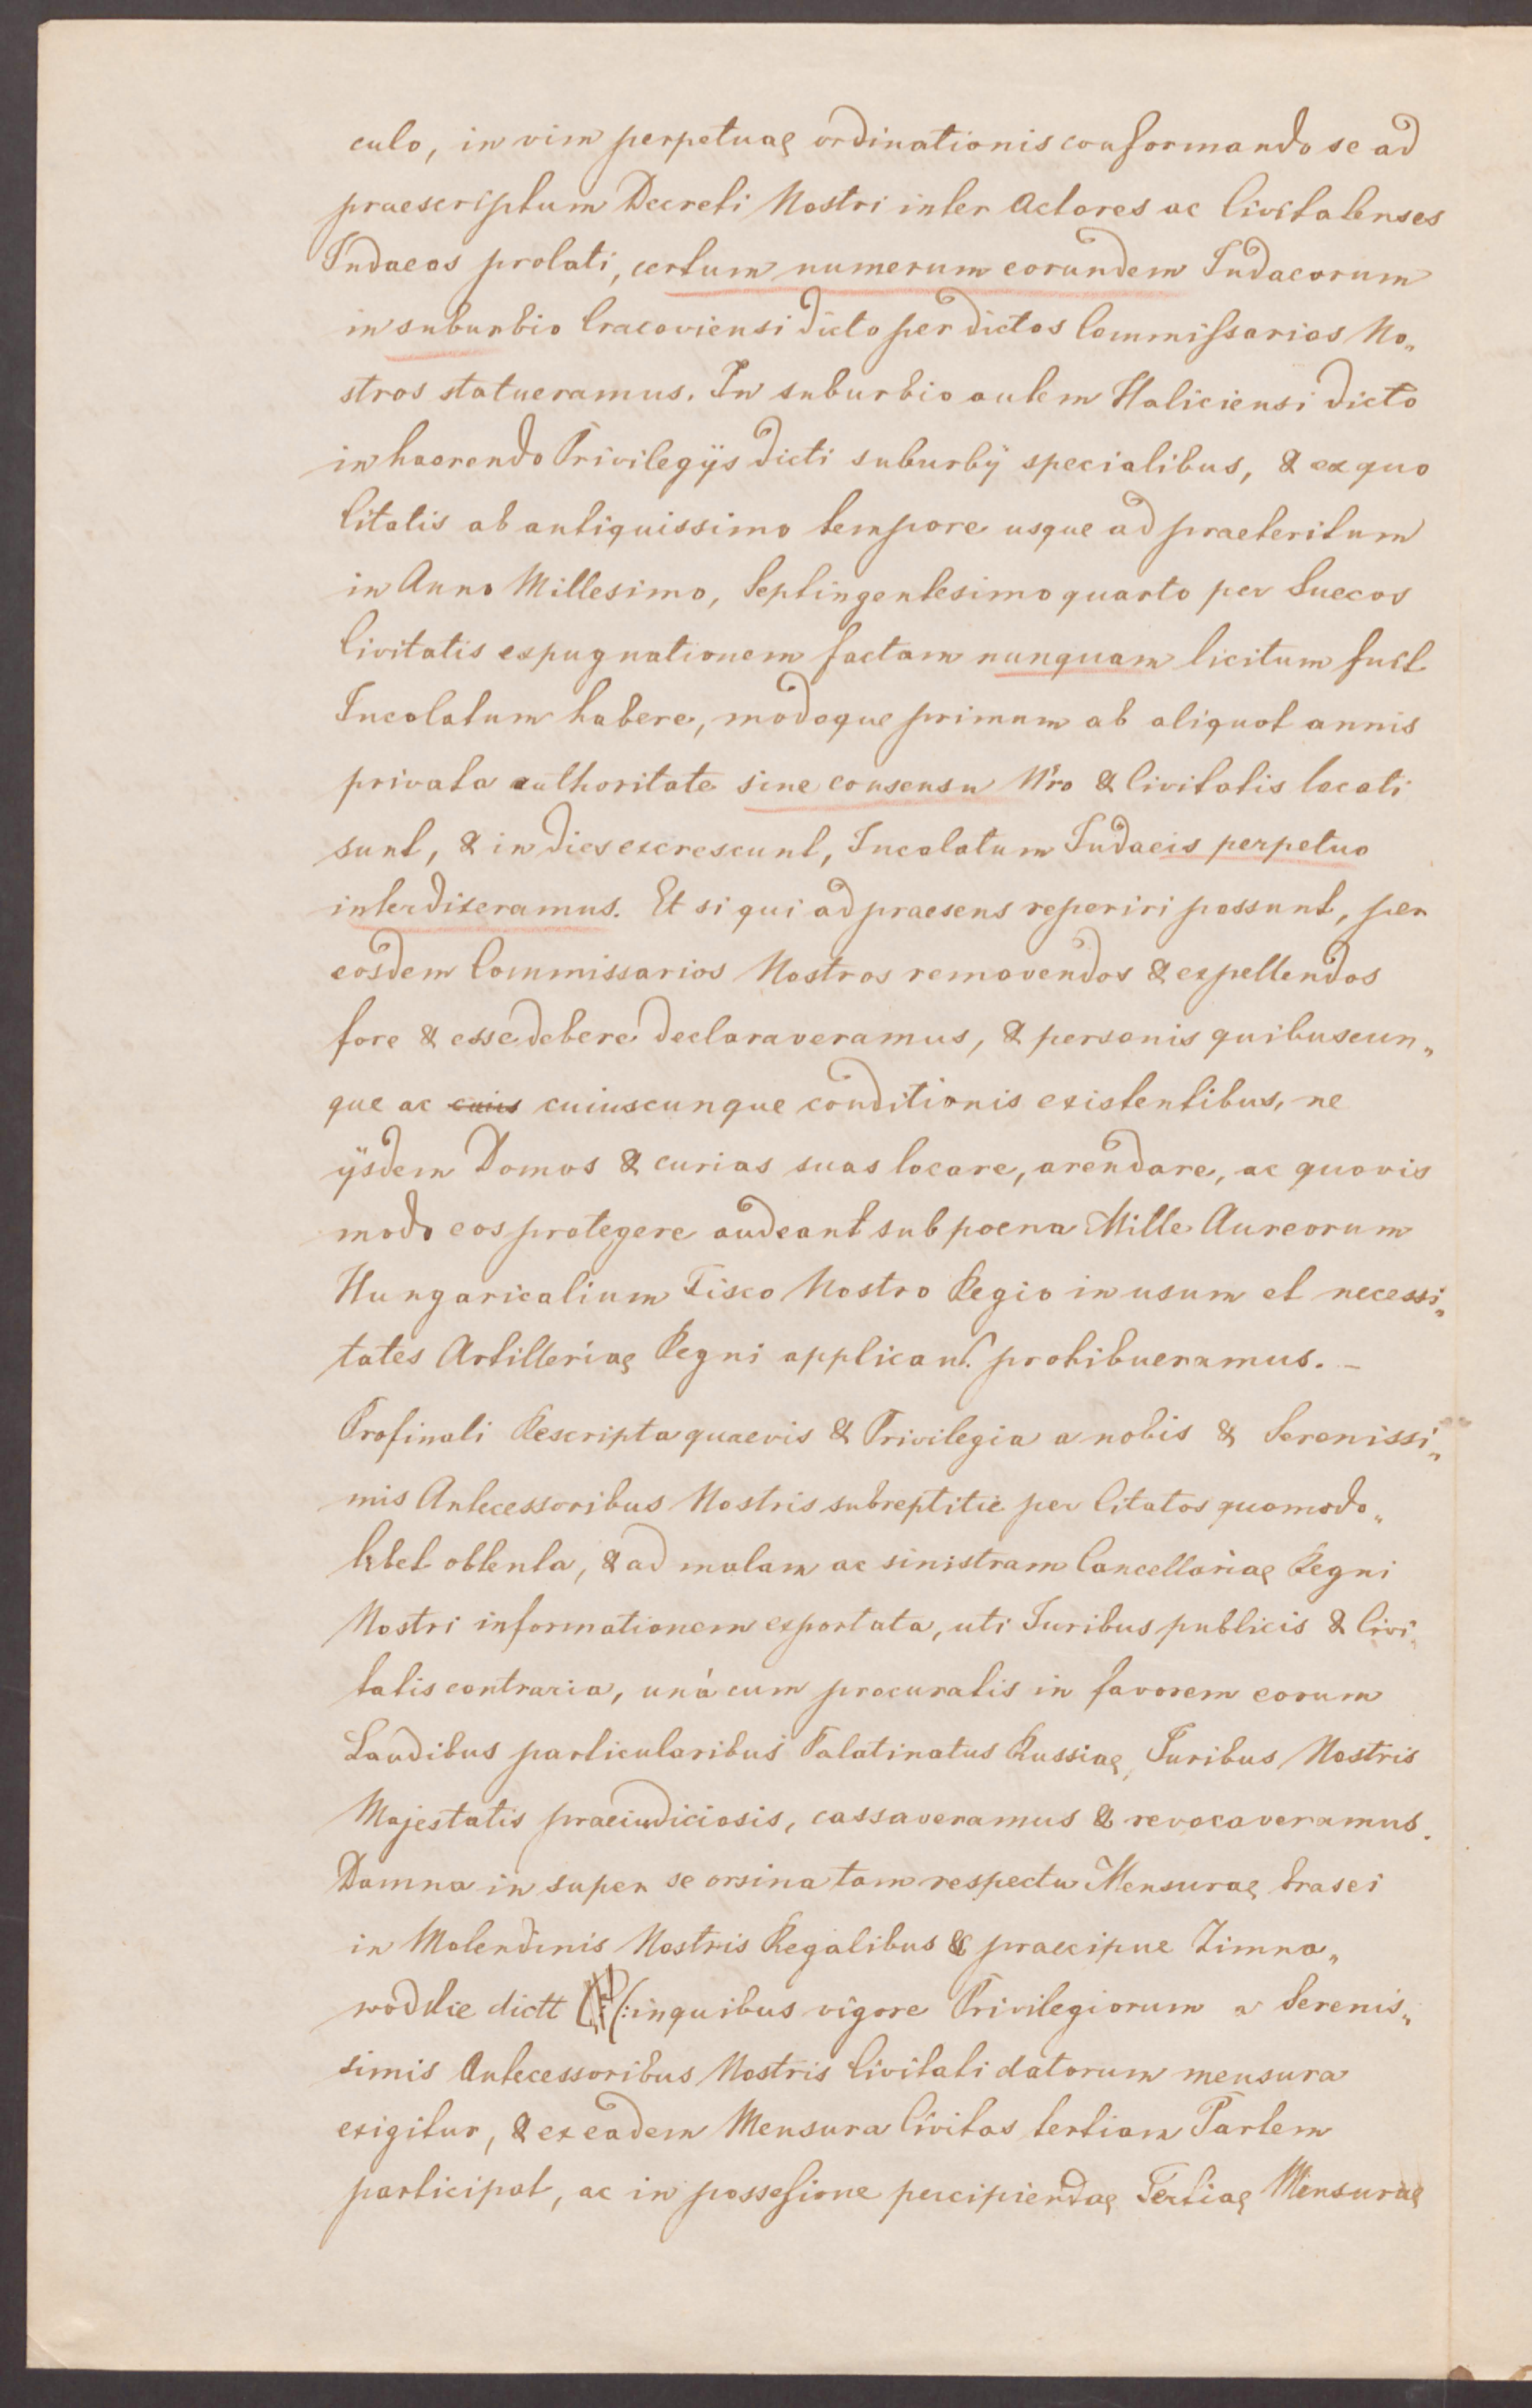 culo, in vim perpetuae ordinationis conformando se ad
praescriptum Decreti Nostri inter Actores ac Civitatenses
Iudaeos prolati, certum numerum eorundem Iudaeorum
in suburbio Cracoviensi dicto per dictos Commissarios No„
stros statueramus. In suburbio autem Haliciensi dicto
inhaerendo Privilegÿs dicti suburbÿ specialibus, & ex quo
Citatis ab antiquissimo tempore usque ad praeteritum
in Anno Millesimo, Septingentesimo quarto per Suecos
Civitatis expugnationem factam nunquam licitum fuit
Incolatum habere, modoque primum ab aliquot annis
privata authoritate sine consensu Nro & Civitatis locati
sunt, & in dies excrescunt, Incolatum Iudaeis perpetuo
interdixeramus. Et si qui ad praesens reperiri possunt, per
eosdem Commissarios Nostros removendos & expellendos
fore & esse debere declaraveramus, & personis quibuscun„
que ac cuius cuiuscunque conditionis existentibus, ne
ÿsdem Domos & curias suas locare, arendare, ac quovis
modo eos protegere audeant sub poena Mille Aureorum
Hungaricalium Fisco Nostro Regio in usum et necessi„
tates Artilleriae Regni applicand. prohibueramus. –
Pro finali Rescripta quaevis & Privilegia a nobis & Serenissi„
mis Antecessoribus Nostris subreptitie per Citatos quomodo„
libet obtenta, & ad malam ac sinistram Cancellariae Regni
Nostri informationem exportata, uti Iuribus publicis & Civi„
tatis contraria, uná cum procuratis in favorem eorum
Laudibus particularibus Palatinatus Russiae, Iuribus Nostris
Majestatis praeiudiciosis, cassaveramus & revocaveramus.
Damna in super se orsina tam respectu Mensurae brasei
in Molendinis Nostris Regalibus & praecipue Zimna„
wodskie dictt (:in quibus vigore Privilegiorum a Serenis„
simis Antecessoribus Nostris Civitati datorum mensura
exigitur, & ex eadem Mensura Civitas tertiam Partem
participat, ac in possessione percipiendae Tertiae Mensurae